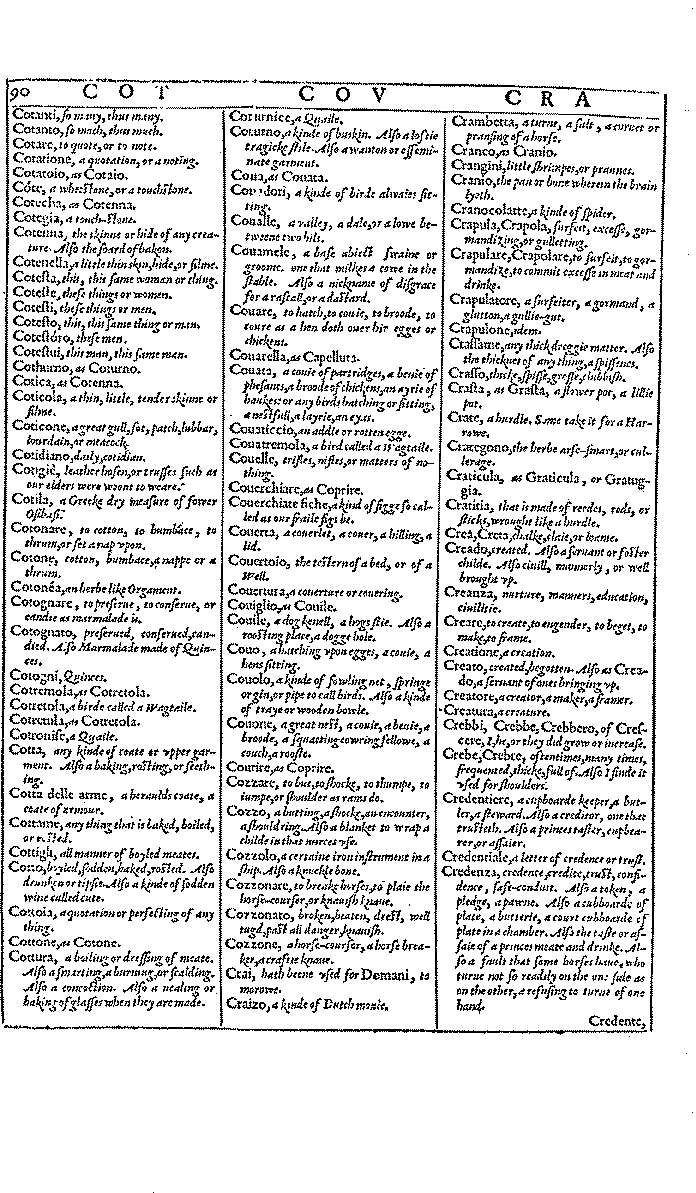 90 COT COV CRA
Cotanti, so many, thus many.
Cotanto, so much, thus much.
Cotare, to quote, or to note.
Cotatione, a quotation, or a noting.
Cotatoio, as Cotaio.
Cóte, a whetstone, or a touchstone.
Cotecha, as Cotenna.
Cotegia, a touch-stone.
Cotenna, the skinne or hide of any crea-
ture. Also the soard of bakon.
Cotenella, a little thin skin, hide, or filme.
Cotesta, this, this same woman or thing.
Coteste, these things or women.
Cotesti, these things or men.
Cotesto, this, this same thing or man.
Cotestóro, these men.
Cotestui, this man, this same man.
Cothurno, as Coturno.
Cotica, as Cotenna.
Coticola, a thin, little, tender skinne or
filme.
Coticone, a great gull, sot, patch, lubbar,
lourdain, or meacock.
Cotidiano, daily, cotidian.
Cotigie, leather hosen, or trusses such as
our elders were woont to weare.
Cotila, a Greeke dry measure of fower
Ossibasi.
Cotonare, to cotton, to bumbace, to
thrum, or set a nap vpon.
Cotone, cotton, bumbace, a nappe or a
thrum.
Cotonéa, an herbe like Organment.
Cotognare, to preserue, to conserue, or
candie as marmalade is.
Cotognato, preserued, conserued, can-
died. Also Marmalade made of Quin-
ces.
Cotogni, Quinces.
Cotremola, as Cotretola.
Cotretola, a birde called a Wagtaile.
Cotreuula, as Cotretola.
Cotronise, a Quaile.
Cotta, any kinde of coate or vpper gar-
ment. Also a baking, rosting, or seeth-
ing.
Cotta delle arme, a heraulds coate, a
coate of armour.
Cottame, any thing that is baked, boiled,
or rosted.
Cottigli, all manner of boyled meates.
Cotto, boyled, sodden, baked, rosted. Also
drunken or tipsie. Also a kinde of sodden
wine called cute.
Cottoia, a quotation or perfecting of any
thing.
Cottone, as Cotone.
Cottura, a boiling or dressing of meate.
Also a smarting, a burning, or scalding.
Also a concoction. Also a nealing or
baking of glasses when they are made.
Coturnice, a Quaile.
Coturno, a kinde of buskin. Also a loftie
tragicke stile. Also a wanton or effemi-
nate garment.
Coua, as Couata.
Couadori, a kinde of birde alwaies sit-
ting.
Coualle, a valley, a dale, or a lowe be-
tweene two hils.
Couamele, a base abiect swaine or
groome, one that milkes a cowe in the
stable. Also a nickname of disgrace
for a rascall, or a dastard.
Couare, to hatch, to couie, to broode, to
coure as a hen doth ouer hir egges or
chickens.
Couarella, as Capelluta.
Couata, a couie of partridges, a beuie of
phesants, a broode of chickens, an ayrie of
haukes: or any birds hatching or sitting,
a nestfull, a layrie, an eyas.
Couaticcio, an addle or rotten egge.
Couatremola, a bird called a Wagtaile.
Couelle, trifles, nifles, or matters of no-
thing.
Couerchiare, as Coprire.
Couerchiate fiche, a kind of figge so cal-
led as our fraile figs be.
Couerta, a couerlet, a couer, a hilling, a
lid.
Couertoio, the testern of a bed, or of a
Well.
Couertura, a couerture or couering.
Couiglio, as Couile.
Couile, a dog kenell, a hogs stie. Also a
roosting place, a dogge hole.
Couo, a hatching vpon egges, a couie, a
hens sitting.
Couolo, a kinde of fowling net, springe
or gin, or pipe to call birds. Also a kinde
of traye or wooden bowle.
Couone, a great nest, a couie, a beuie, a
broode, a squatting-cowring fellowe, a
couch, a rooste.
Courire, as Coprire.
Cozzare, to but, to shocke, to thumpe, to
iumpe, or shoulder as rams do.
Cozzo, a butting, a shocke, an encounter,
a shouldring. Also a blanket to wrap a
childe in that nurces vse.
Cozzolo, a certaine iron instrument in a
ship. Also a knuckle bone.
Cozzonare, to breake horses, to plaie the
horse-coursor, or knauish knaue.
Cozzonato, broken, beaten, drest, well
tugd, past all danger, knauish.
Cozzone, a horse-coursor, a horse brea-
ker, a craftie knaue.
Crai, hath beene vsed for Domani, to
morowe.
Craizo, a kinde of Dutch monie.
Crambetta, a turne, a salt, a coruet or
pransing of a horse.
Cranco, as Cranio.
Crangini, little shrimpes, or prannes.
Cranio, the pan or bone wherein the brain
lyeth.
Cranocolatte, a kinde of spider.
Crapula, Crapola, surfeit, excesse, gor-
mandizing, or gulletting.
Crapulare, Crapolare, to surfeit, to gor-
mandize, to commit excesse in meat and
drinke.
Crapulatore, a surfeiter, a gormand, a
glutton, a gullie-gut.
Crapulone, idem.
Crassame, any thick dreggie matter. Also
the thicknes of any thing, a spissenes.
Crasso, thicke, spisse, grosse, chiblish.
Crasta, as Grasta, a flower pot, a lillie
pot.
Crate, a hurdle. Some take it for a Har-
rowe.
Crategono, the herbe arse-smart, or cul-
lerage.
Craticula, as Graticula, or Gratug-
gia.
Cratitia, that is made of reedes, rods, or
stickes, wrought like a hurdle.
Crea, Creta, chalke, claie, or loame.
Creado, created. Also a seruant or foster
childe. Also ciuill, mannerly, or well
brought vp.
Creanza, nurture, manners, education,
ciuilitie.
Creare, to create, to engender, to beget, to
make, to frame.
Creatione, a creation.
Creato, created, begotten. Also as Crea-
do, a seruant of ones bringing vp.
Creatore, a creator, a maker, a framer.
Creatura, a creature.
Crebbi, Crebbe, Crebbero, of Cres-
cere, I, he, or they did grow or increase.
Crebe, Crebre, oftentimes, many times,
frequented, thicke, full of. Also I finde it
vsed for shoulders.
Credentiere, a cupboarde keeper, a but-
ler, a steward. Also a creditor, one that
trusteth. Also a princes taster, cupbea-
rer, or assaier.
Credentiale, a letter of credence or trust.
Credenza, credence, credite, trust, confi-
dence, safe-conduit. Also a token, a
pledge, a pawne. Also a cubboarde of
plate, a butterie, a court cubboarde of
plate in a chamber. Also the taste or as-
saie of a princes meate and drinke. Al-
so a fault that some horses haue, who
turne not so readily on the one side as
on the other, a refusing to turne of one
hand.
Credente,